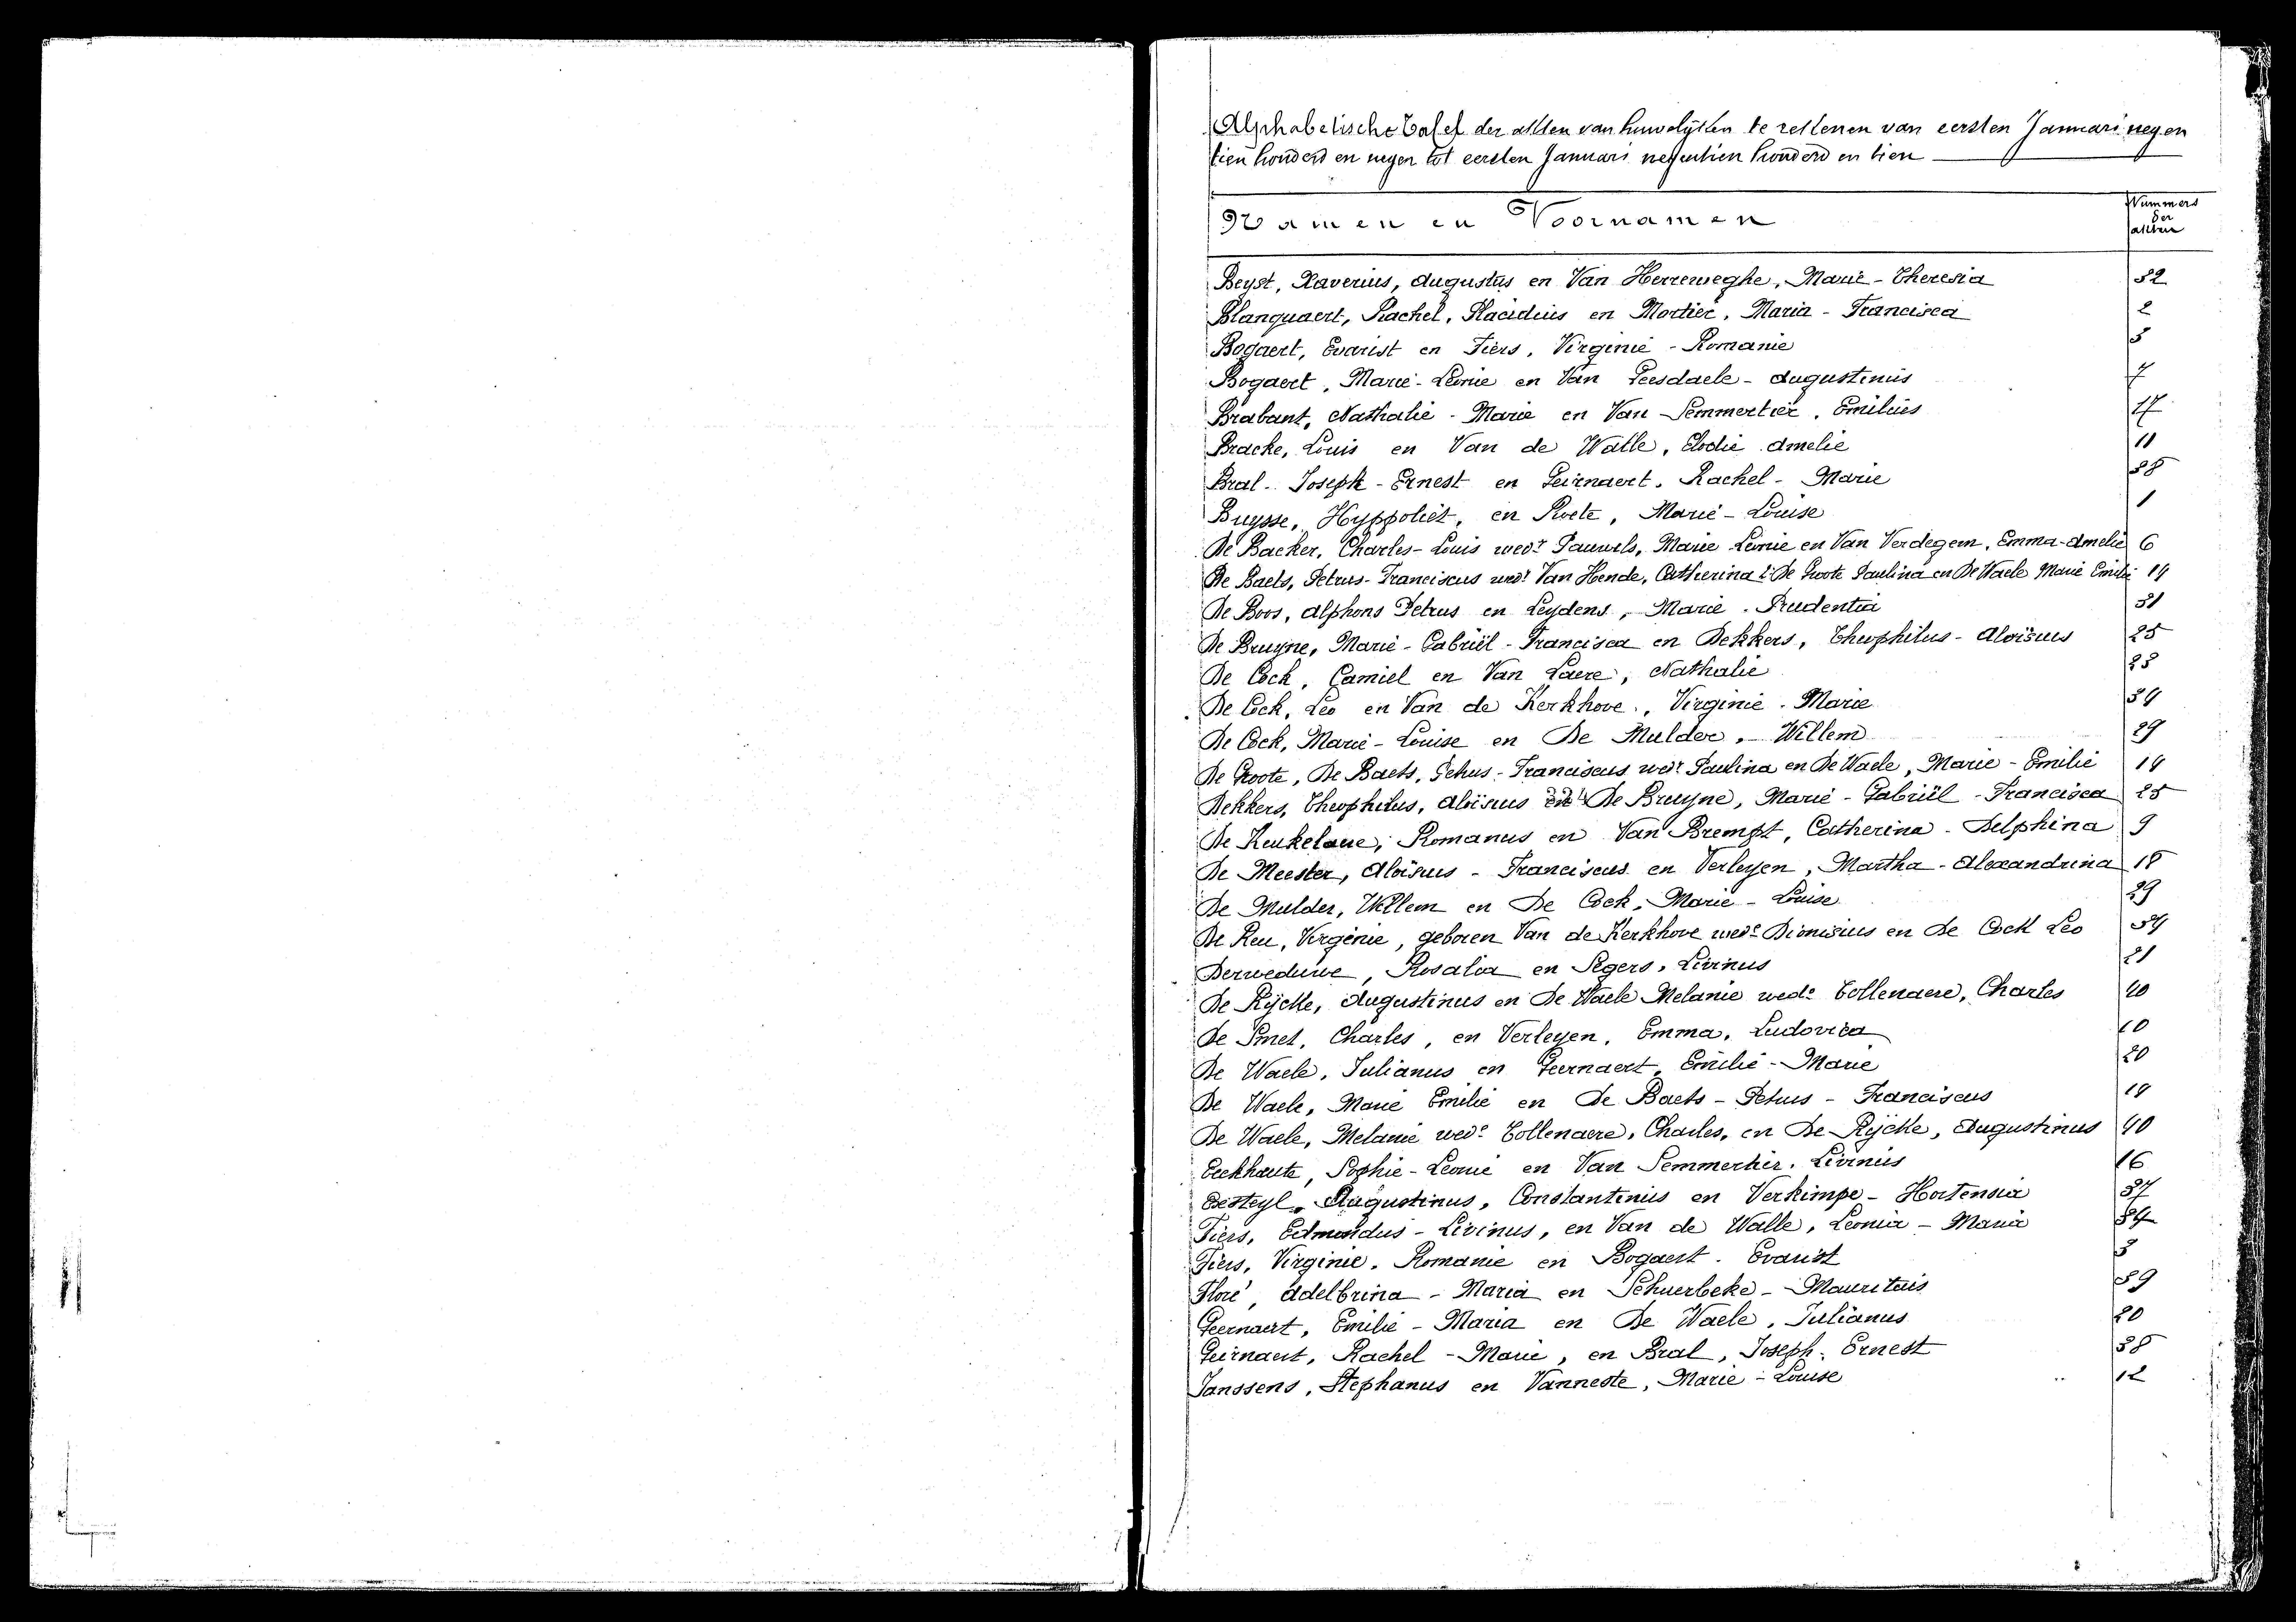 Alphabetische Tafel der akten van huwelijken te rekenen van eersten Januari negen
tien honderd en negen tot eersten Januari negentien honderd en tien
Namen en Voornamen
Nummers
der
akten
Beyst, Xaverius, Augustus en Van Herreweghe, Marie - Theresia 32
Blanquaert, Rachel, Placidius en Mortier, Maria - Francisca 2
Bogaert, Evarist en Fiers, Virginie - Romanie 3
Bogaert, Marie-Leonie en Van Geesdaele - Augustinus 7
Brabant, Nathalie - Marie en Van Semmertier, Emilius 17
Bracke, Louis en Van de Walle, Elodie Amelie 11
Bral - Joseph - Ernest en Geirnaert, Rachel - Marie 38
Buysse, Hyppoliet, en Roete, Marie - Louise 1
De Backer, Charles-Louis wedr Pauwels, Marie Leonie en Van Verdegem, Emma-Amelie 6
De Baets, Petrus-Franciscus wedr Van Hende, Catherina 2e De Groote Paulina en De Waele Marie Emilie 14
De Boos, Alphons Petrus en Leydens, Marie - Prudentia 31
De Bruyne, Marie - Gabriël - Francisca en Dekkers, Theophilus - Aloïsius 25
De Cock, Camiel en Van Laere, Nathalie 23
De Cock, Leo en Van de Kerkhove, Virginie - Marie 34
De Cock, Marie - Louise en De Mulder, - Willem 29
De Groote, De Baets, Petrus-Franciscus wedr Paulina en De Waele, Marie - Emilie 14
Dekkers, Theophilus, Aloïsius en De Bruyne, Marie - Gabriël - Francisca 25
De Keukelaere, Romanus en Van Brempt, Catherina - Delphina 9
De Meester, Aloïsius - Franciscus en Verleyen, Martha - Alexandrina 18
De Mulder, Willem en De Cock, Marie - Louise 29
De Reu, Virginie, geboren Van de Kerkhove wede Dionisius en De Cock Leo 34
Derweduwe, Rosalia en Segers, Livinus 21
De Rÿcke, Augustinus en De Waele Melanie wede Tollenaere, Charles 40
De Smet, Charles, en Verleyen, Emma, Ludovica 10
De Waele, Julianus en Geernaert, Emilie - Marie 20
De Waele, Marie Emilie en De Baets - Petrus - Franciscus 14
De Waele, Melanie wede Tollenaere, Charles, en De Rÿcke, Augustinus 40
Eeckhaute, Sophie - Leonie en Van Semmertier, Livinus 16
Esteyl, Augustinus, Constantinus en Verkimpe - Hortensia 37
Fiers, Edmondus - Livinus, en Van de Walle, Leonia - Maria 24
Fiers, Virginie, Romanie en Bogaert - Evarist 3
Floré, Adelbrina - Maria en Schuerbeke - Mauritius 39
Geernaert, Emilie - Maria en De Waele, Julianus 20
Geirnaert, Rachel - Marie, en Bral, Joseph - Ernest 38
Janssens, Stephanus en Vanneste, Marie - Louise 12